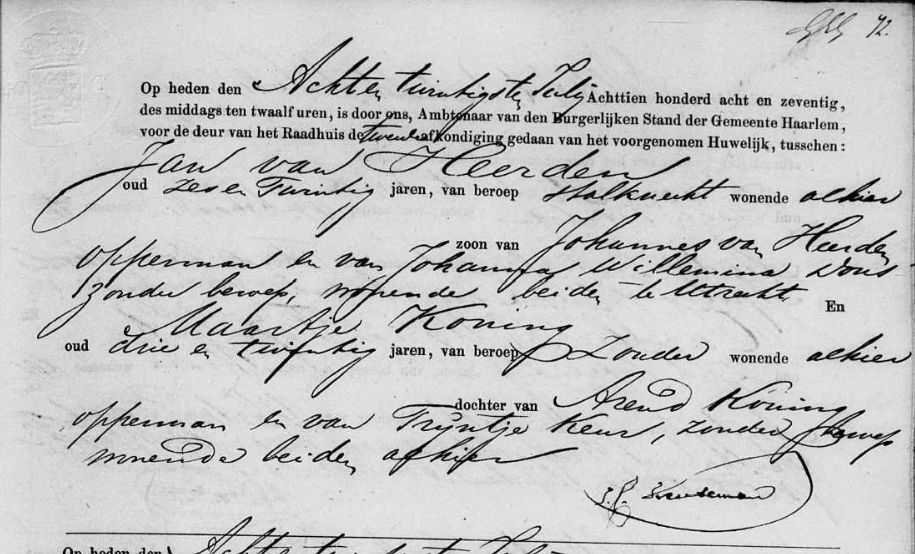 72.
Op heden den Acht en twintigsten Julij Achttien honderd acht en zeventig,
des middags ten twaalf uren, is door ons, Ambtenaar van den Burgerlijken Stand der Gemeente Haarlem,
voor de deur van het Raadhuis de tweede afkondiging gedaan van het voorgenomen Huwelijk, tusschen:
Jan van Heerden
oud zes en Twintig jaren, van beroep Stalknecht wonende alhier
zoon van Johannes van Heerden
opperman en van Johanna Willemina
zonder beroep, wonende beiden te Utrecht
En
Maartje Koning
oud drie en twintig jaren, van beroep zonder wonende alhier
dochter van Arend Koning
opperman en van Trijntje Keur, zonder beroep
wonende beiden alhier
Op heden den Acht en twintigsten Julij